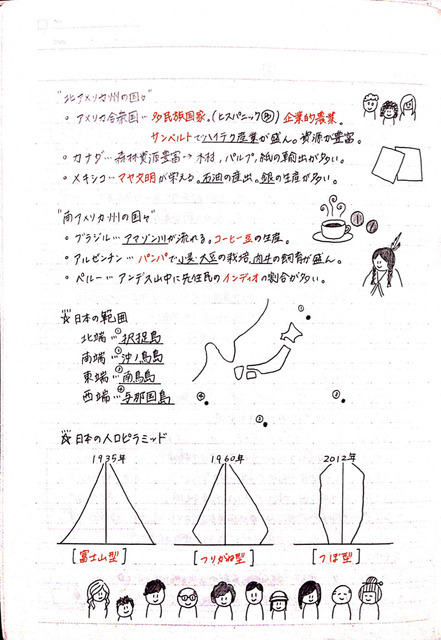 "北アメリカ州の国々"
・アメリカ合衆国…多民族国家。(ヒスパニック㊥) 企業的農業。
サンベルトでハイテク産業が盛ん。資源が豊富。
・カナダ…森林資源豊富→木材、パルプ、紙の輸出が多い。
・メキシコ…マヤ文明が栄える。石油の産出。銀の生産が多い。
"南アメリカ州の国々"
・ブラジル…アマゾン川が流れる。コーヒー豆の生産。
・アルゼンチン…パンパで小麦・大豆の栽培、肉牛の飼育が盛ん。
・ペルー…アンデス山中に先住民のインディオの割合が多い。
☆日本の範囲
北端…①択捉島
南端…②沖ノ鳥島
東端…③南鳥島
西端…④与那国島
①
④
③
②
☆日本の人口ピラミッド
1935年 1960年 2012年
[富士山型] [つりがね型] [つぼ型]